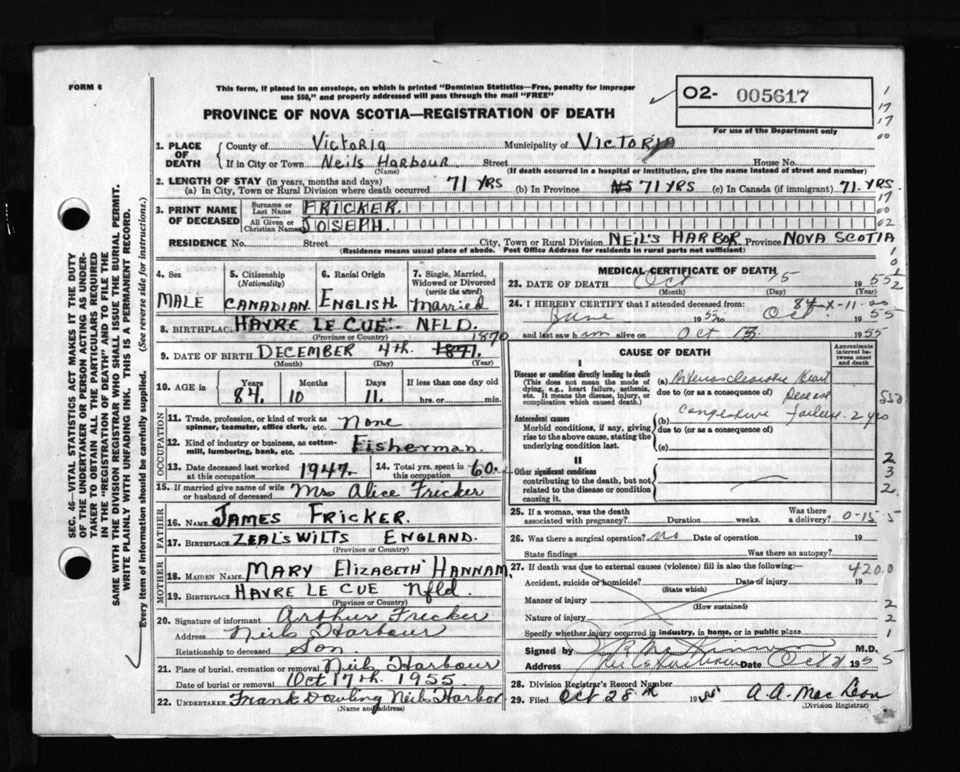 FORM 6
This form, if placed in an envelope, on which is printed "Dominion Statistics—Free, penalty for improper
use $50," and properly addressed will pass through the mail "FREE"
PROVINCE OF NOVA SCOTIA—REGISTRATION OF DEATH
O2- 005617
For use of the Department only
1. PLACE OF DEATH
County of Victoria Municipality of VICTORIA
If in City or Town Neils Harbour Street House No.
(Name) (If death occurred in a hospital or institution, give the name instead of street and number)
2. LENGTH OF STAY (in years, months and days)
(a) In City, Town or Rural Division where death occurred 71 YRS (b) In Province NS 71 YRS (c) In Canada (if immigrant) 71. YRS.
3. PRINT NAME OF DECEASED
Surname or Last Name FRICKER.
All Given or Christian Names JOSEPH.
RESIDENCE No. Street City, Town or Rural Division NEIL'S HARBOR Province NOVA SCOTIA
(Residence means usual place of abode. Post Office Address for residents in rural parts not sufficient)
4. Sex
MALE
5. Citizenship (Nationality)
CANADIAN
6. Racial Origin
ENGLISH
7. Single, Married, Widowed or Divorced (write the word)
Married
8. BIRTHPLACE HAVRE LE CUE NFLD.
(Province or Country)
1870
9. DATE OF BIRTH DECEMBER 4th. 1871.
(Month) (Day) (Year)
10. AGE in Years 84. Months 10 Days 11. If less than one day old
hrs. or min.
OCCUPATION
11. Trade, profession, or kind of work as
spinner, teamster, office clerk, etc. None
12. Kind of industry or business, as cotton-
mill, lumbering, bank, etc. Fisherman.
13. Date deceased last worked
at this occupation 1947.
14. Total yrs. spent in
this occupation 60.
15. If married give name of wife
or husband of deceased Mrs Alice Fricker
FATHER
16. NAME JAMES FRICKER.
17. BIRTHPLACE ZEAL'S WILTS ENGLAND.
(Province or Country)
MOTHER
18. MAIDEN NAME MARY ELIZABETH HANNAM.
19. BIRTHPLACE HAVRE LE CUE Nfld.
(Province or Country)
20. Signature of informant Arthur Fricker
Address Neils Harbour
Relationship to deceased Son.
21. Place of burial, cremation or removal Neils Harbour
Date of burial or removal Oct 17th. 1955
22. UNDERTAKER Frank Dowling Neils Harbor
(Name and address)
MEDICAL CERTIFICATE OF DEATH
23. DATE OF DEATH Oct 15 1955
(Month) (Day) (Year)
24. I HEREBY CERTIFY that I attended deceased from:
June 1955 to Oct. 1955
and last saw him alive on Oct 13 1955
CAUSE OF DEATH
Approximate interval between onset and death
I
Disease or condition directly leading to death
(This does not mean the mode of
dying, e.g., heart failure, asthenia,
etc. It means the disease, injury, or
complication which caused death.)
(a) Arteriosclerotic Heart Disease
due to (or as a consequence of)
Antecedent causes
Morbid conditions, if any, giving
rise to the above cause, stating the
underlying condition last.
(b) Congestive failure. 2 yrs
due to (or as a consequence of)
(c)
II
Other significant conditions
contributing to the death, but not
related to the disease or condition
causing it.
25. If a woman, was the death
associated with pregnancy? Duration weeks. Was there a delivery?
0-15-5
26. Was there a surgical operation? no Date of operation 19
State findings Was there an autopsy?
27. If death was due to external causes (violence) fill in also the following:—
420.0
Accident, suicide or homicide? Date of injury 19
(State which)
Manner of injury
(How sustained)
Nature of injury
Specify whether injury occurred in industry, in home, or in public place
Signed by M.D.
Address Neils Harbour Date Oct 1955
28. Division Registrar's Record Number
29. Filed Oct 28th 1955 A. A. MacLeon
(Division Registrar)
SEC. 46—VITAL STATISTICS ACT MAKES IT THE DUTY
OF THE UNDERTAKER OR PERSON ACTING AS UNDER-
TAKER TO OBTAIN ALL THE PARTICULARS REQUIRED
IN THE "REGISTRATION OF DEATH" AND TO FILE THE
SAME WITH THE DIVISION REGISTRAR WHO SHALL ISSUE THE BURIAL PERMIT.
WRITE PLAINLY WITH UNFADING INK. THIS IS A PERMANENT RECORD.
Every item of information should be carefully supplied. (See reverse side for instructions.)